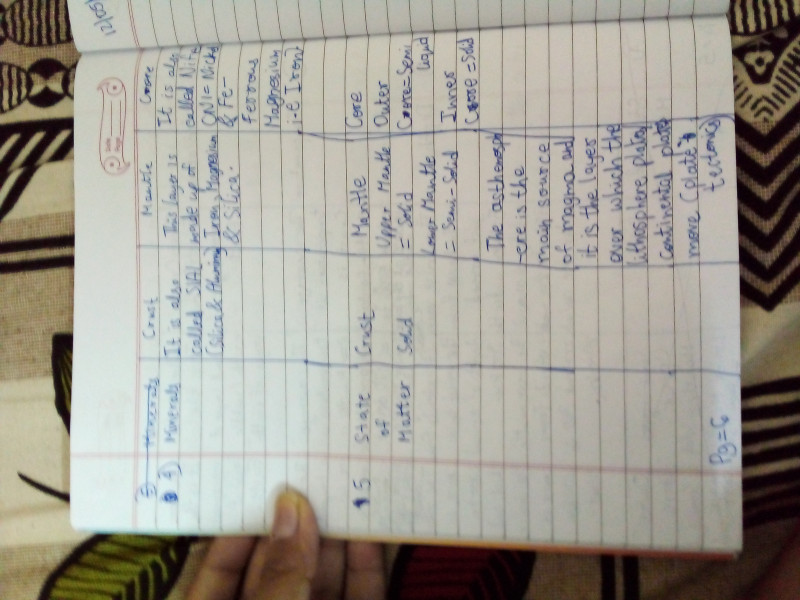 12/05/
3) Minerals Crust Mantle Coore
4) Minerals It is also This layer is It is also
called SIAL made up of called Nife
(Silica & Alumina) Iron, Magnesium (Ni = Nickel
& Silica. & Fe-
Ferrous
Magnesium
i.e Iron)
5 State Crust Mantle Core
of Upper Mantle Outer
Matter Solid = Solid Coore = Semi
Lower Mantle liquid
= Semi-Solid Inner
Coore = Solid
The asthenosph
-ere is the
main source
of magma and
it is the layer
over which the
lithosphere plates,
continental plates
move (plate
tectonics)
Pg = 6